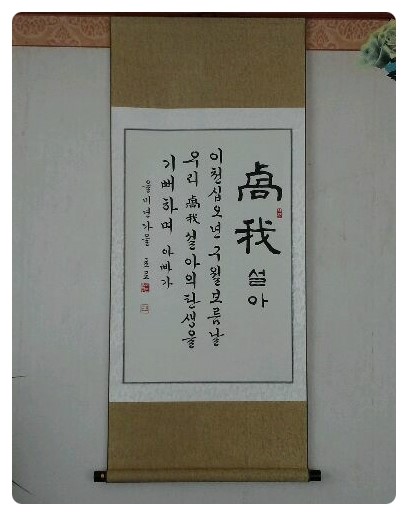 卨我 설아
이천십오년 구월보름날
우리 卨我 설아의 탄생을
기뻐하며 아빠가
을미년가을